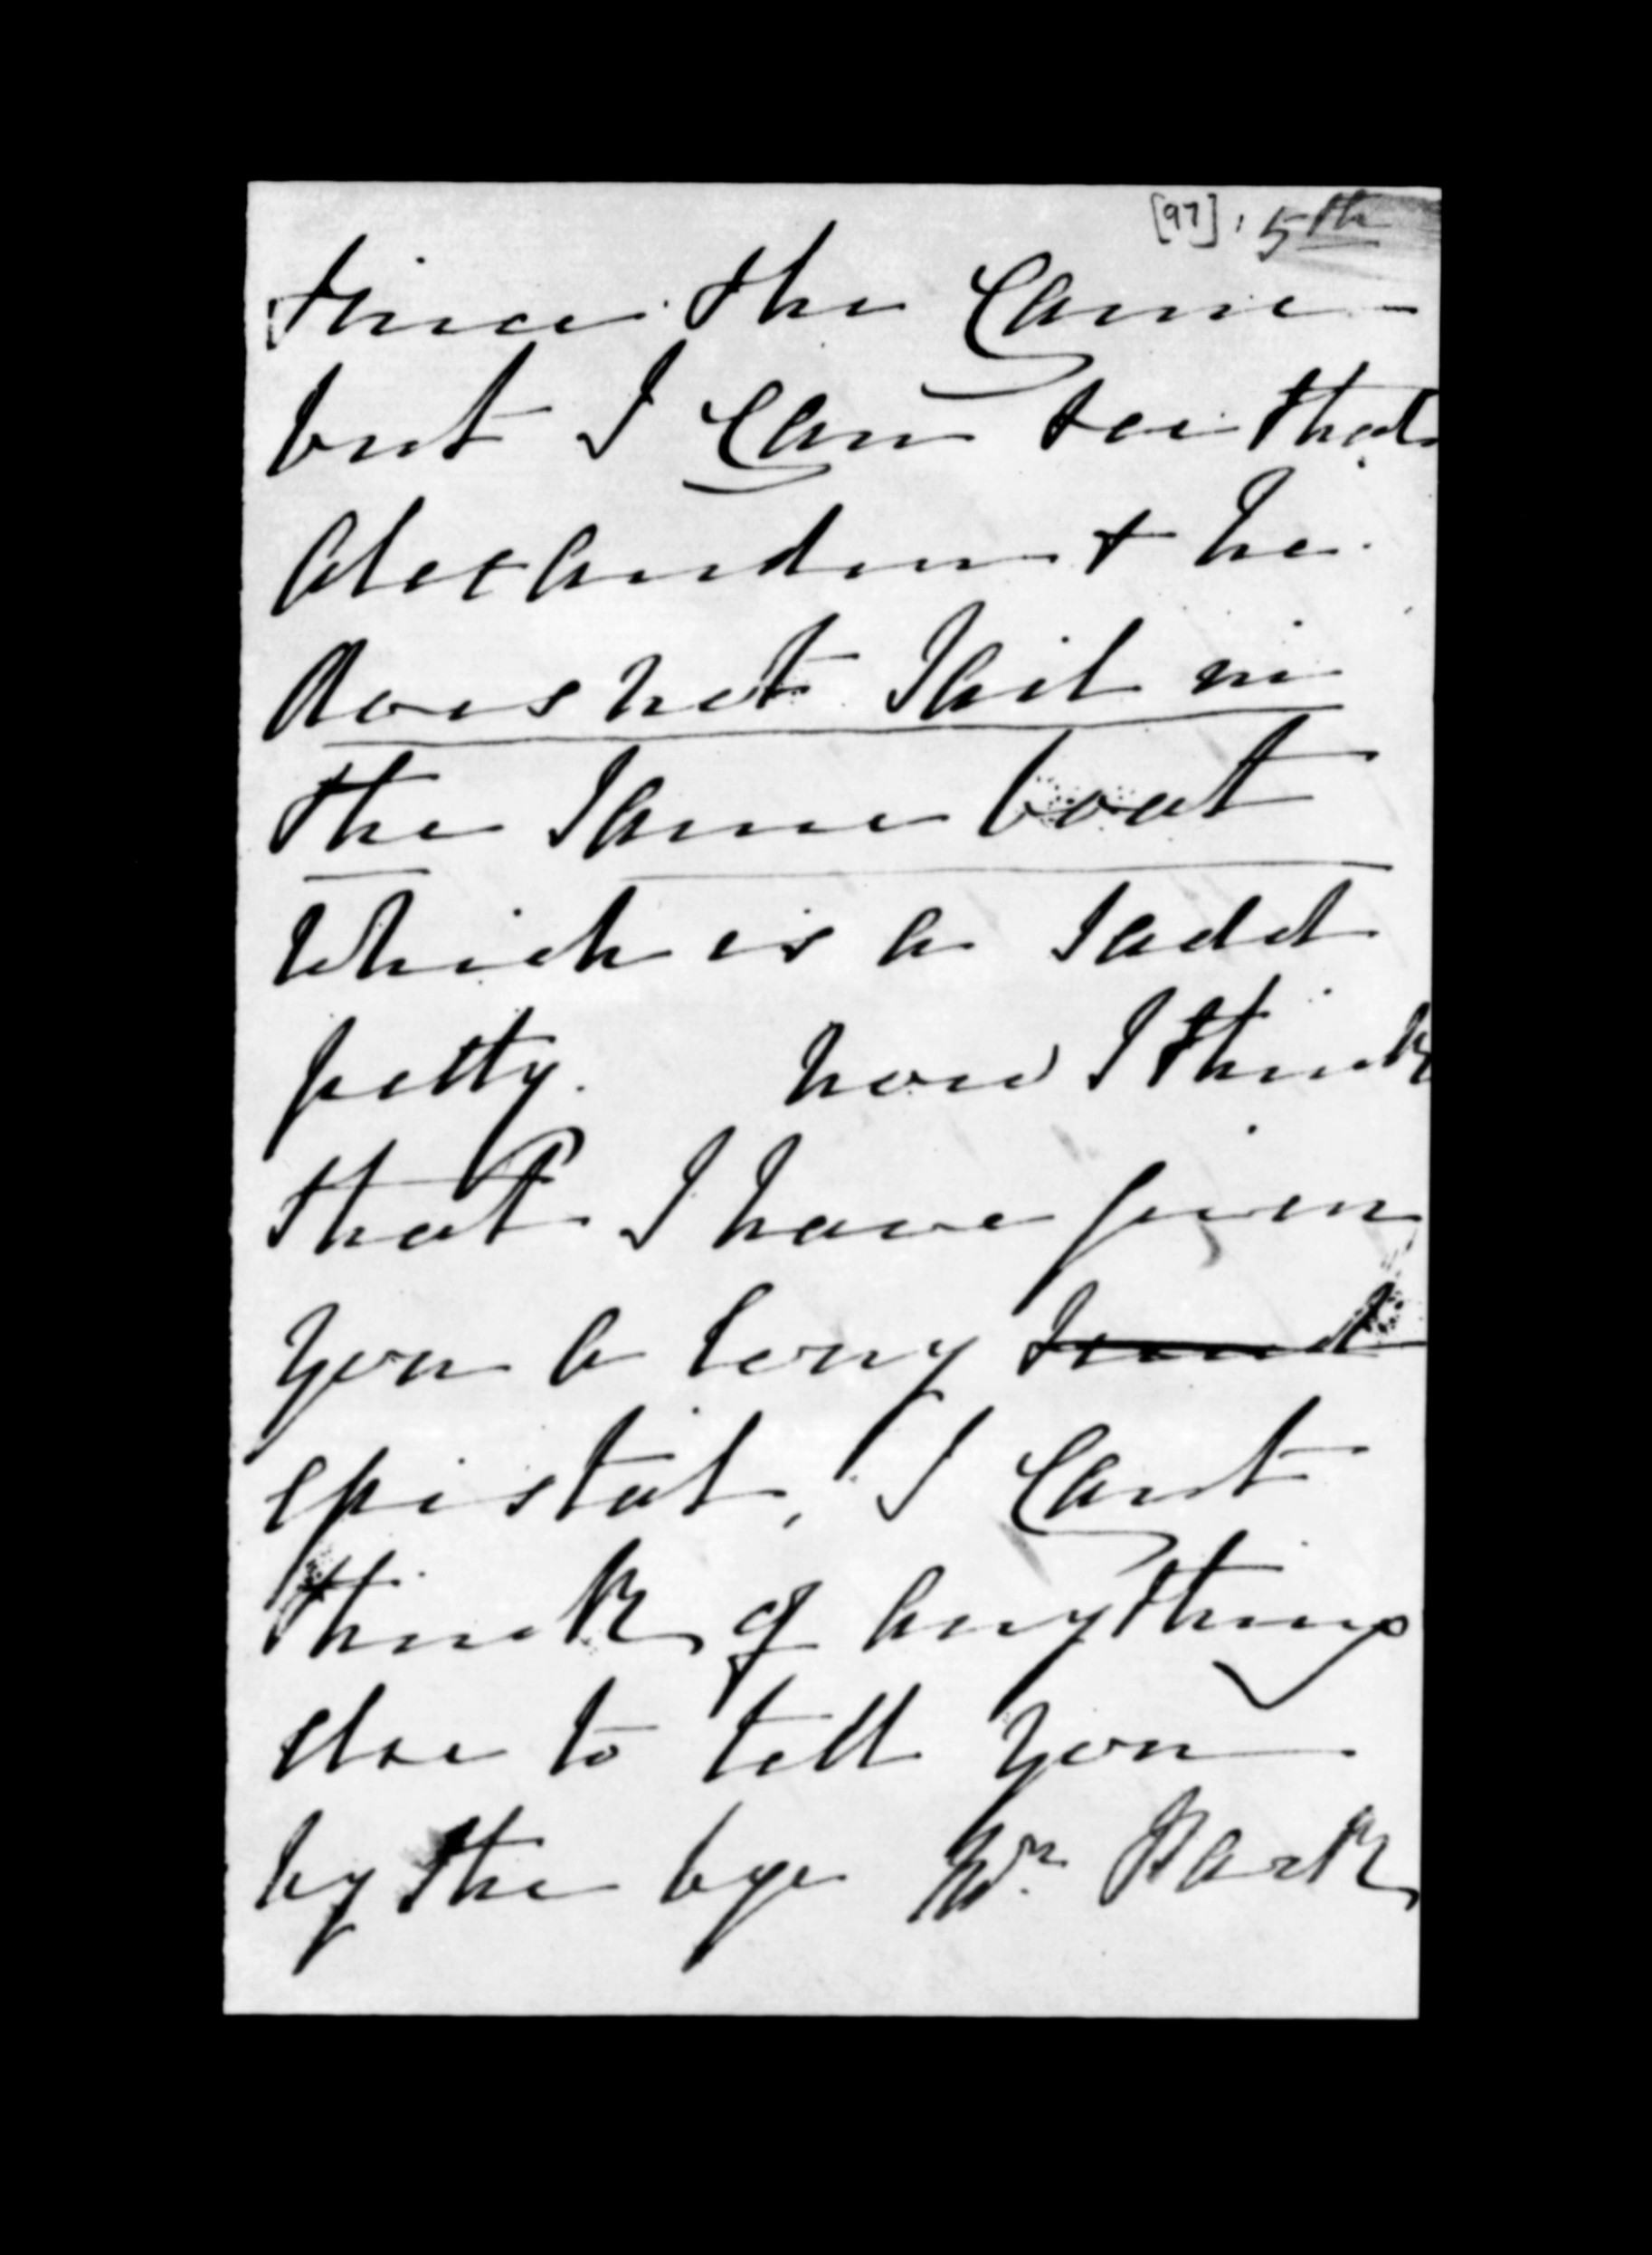 [97] 5th
since she came –
but I can see that
Alexander & he
does not Sail in
the Same boat
which is a sadd
petty. now I think
that I have given
you a long
epistol, I cant
think of anything
else to tell you
by the bye Mr Park